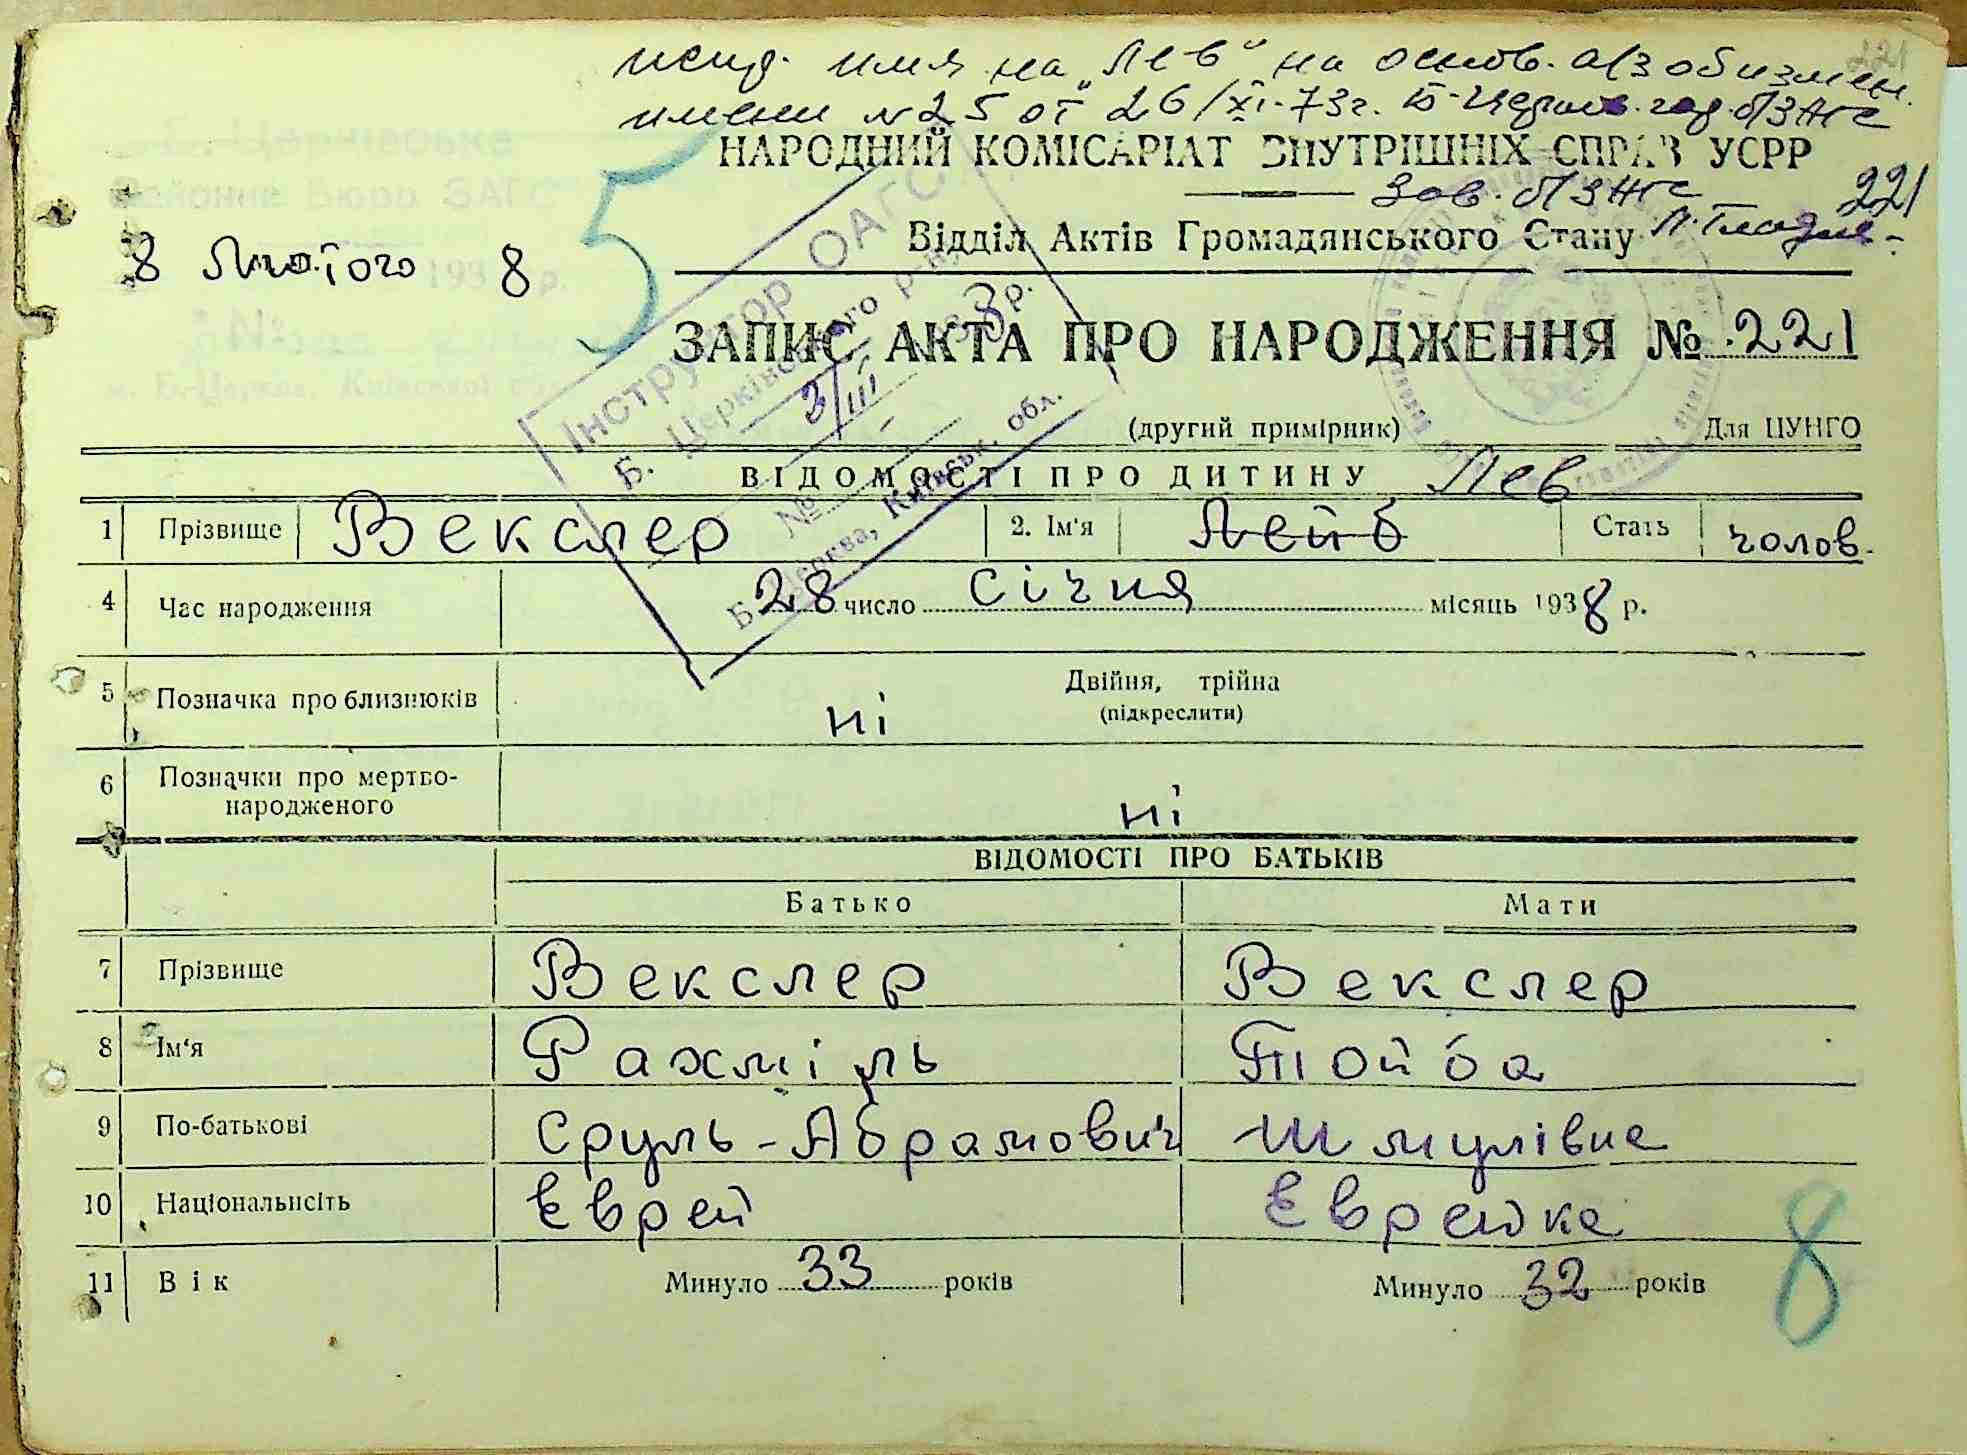 испр. имя на „Лев" на основ. а/з об измен.
имени №25 от 26/XI-73г. Б-Церков. гор. б/ЗАГС
НАРОДНИЙ КОМІСАРІАТ ВНУТРІШНІХ СПРАВ УСРР
Зав. б/ЗАГС
221
Відділ Актів Громадянського Стану
8 Лютого 1938 р.
ЗАПИС АКТА ПРО НАРОДЖЕННЯ № 221
Інструктор ОАГС
Б. Церківського р-ну
3/III 1938 р.
№
Б. Церква, Київськ. обл.
м. Б.-Церква, Київської обл.
(другий примірник) Для ЦУНГО
ВІДОМОСТІ ПРО ДИТИНУ Лев
1 Прізвище Векслер 2. Ім'я Лейб Стать чолов.
4 Час народження 28 число Січня місяць 1938 р.
5 Позначка про близнюків ні Двійня, трійна
(підкреслити)
6 Позначки про мертво-
народженого ні
ВІДОМОСТІ ПРО БАТЬКІВ
Батько Мати
7 Прізвище Векслер Векслер
8 Ім'я Рахміль Тойба
9 По-батькові Сруль-Абрамович Шмулівна
10 Національність Єврей Єврейка
11 Вік Минуло 33 років Минуло 32 років
5
8